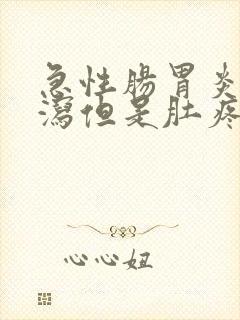 急性腸胃炎
瀉但是肚疼
心心妞